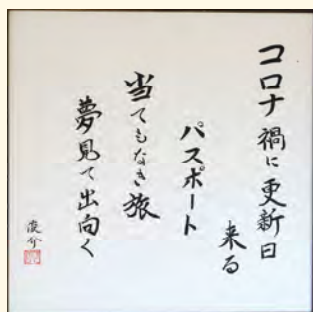 コロナ禍に更新日
来る
パスポート
当てもなき旅
夢見て出向く